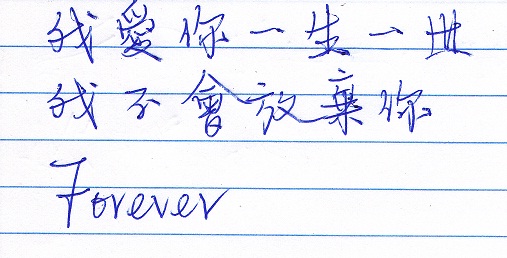 我愛你一生一世
我不會放棄你
Forever